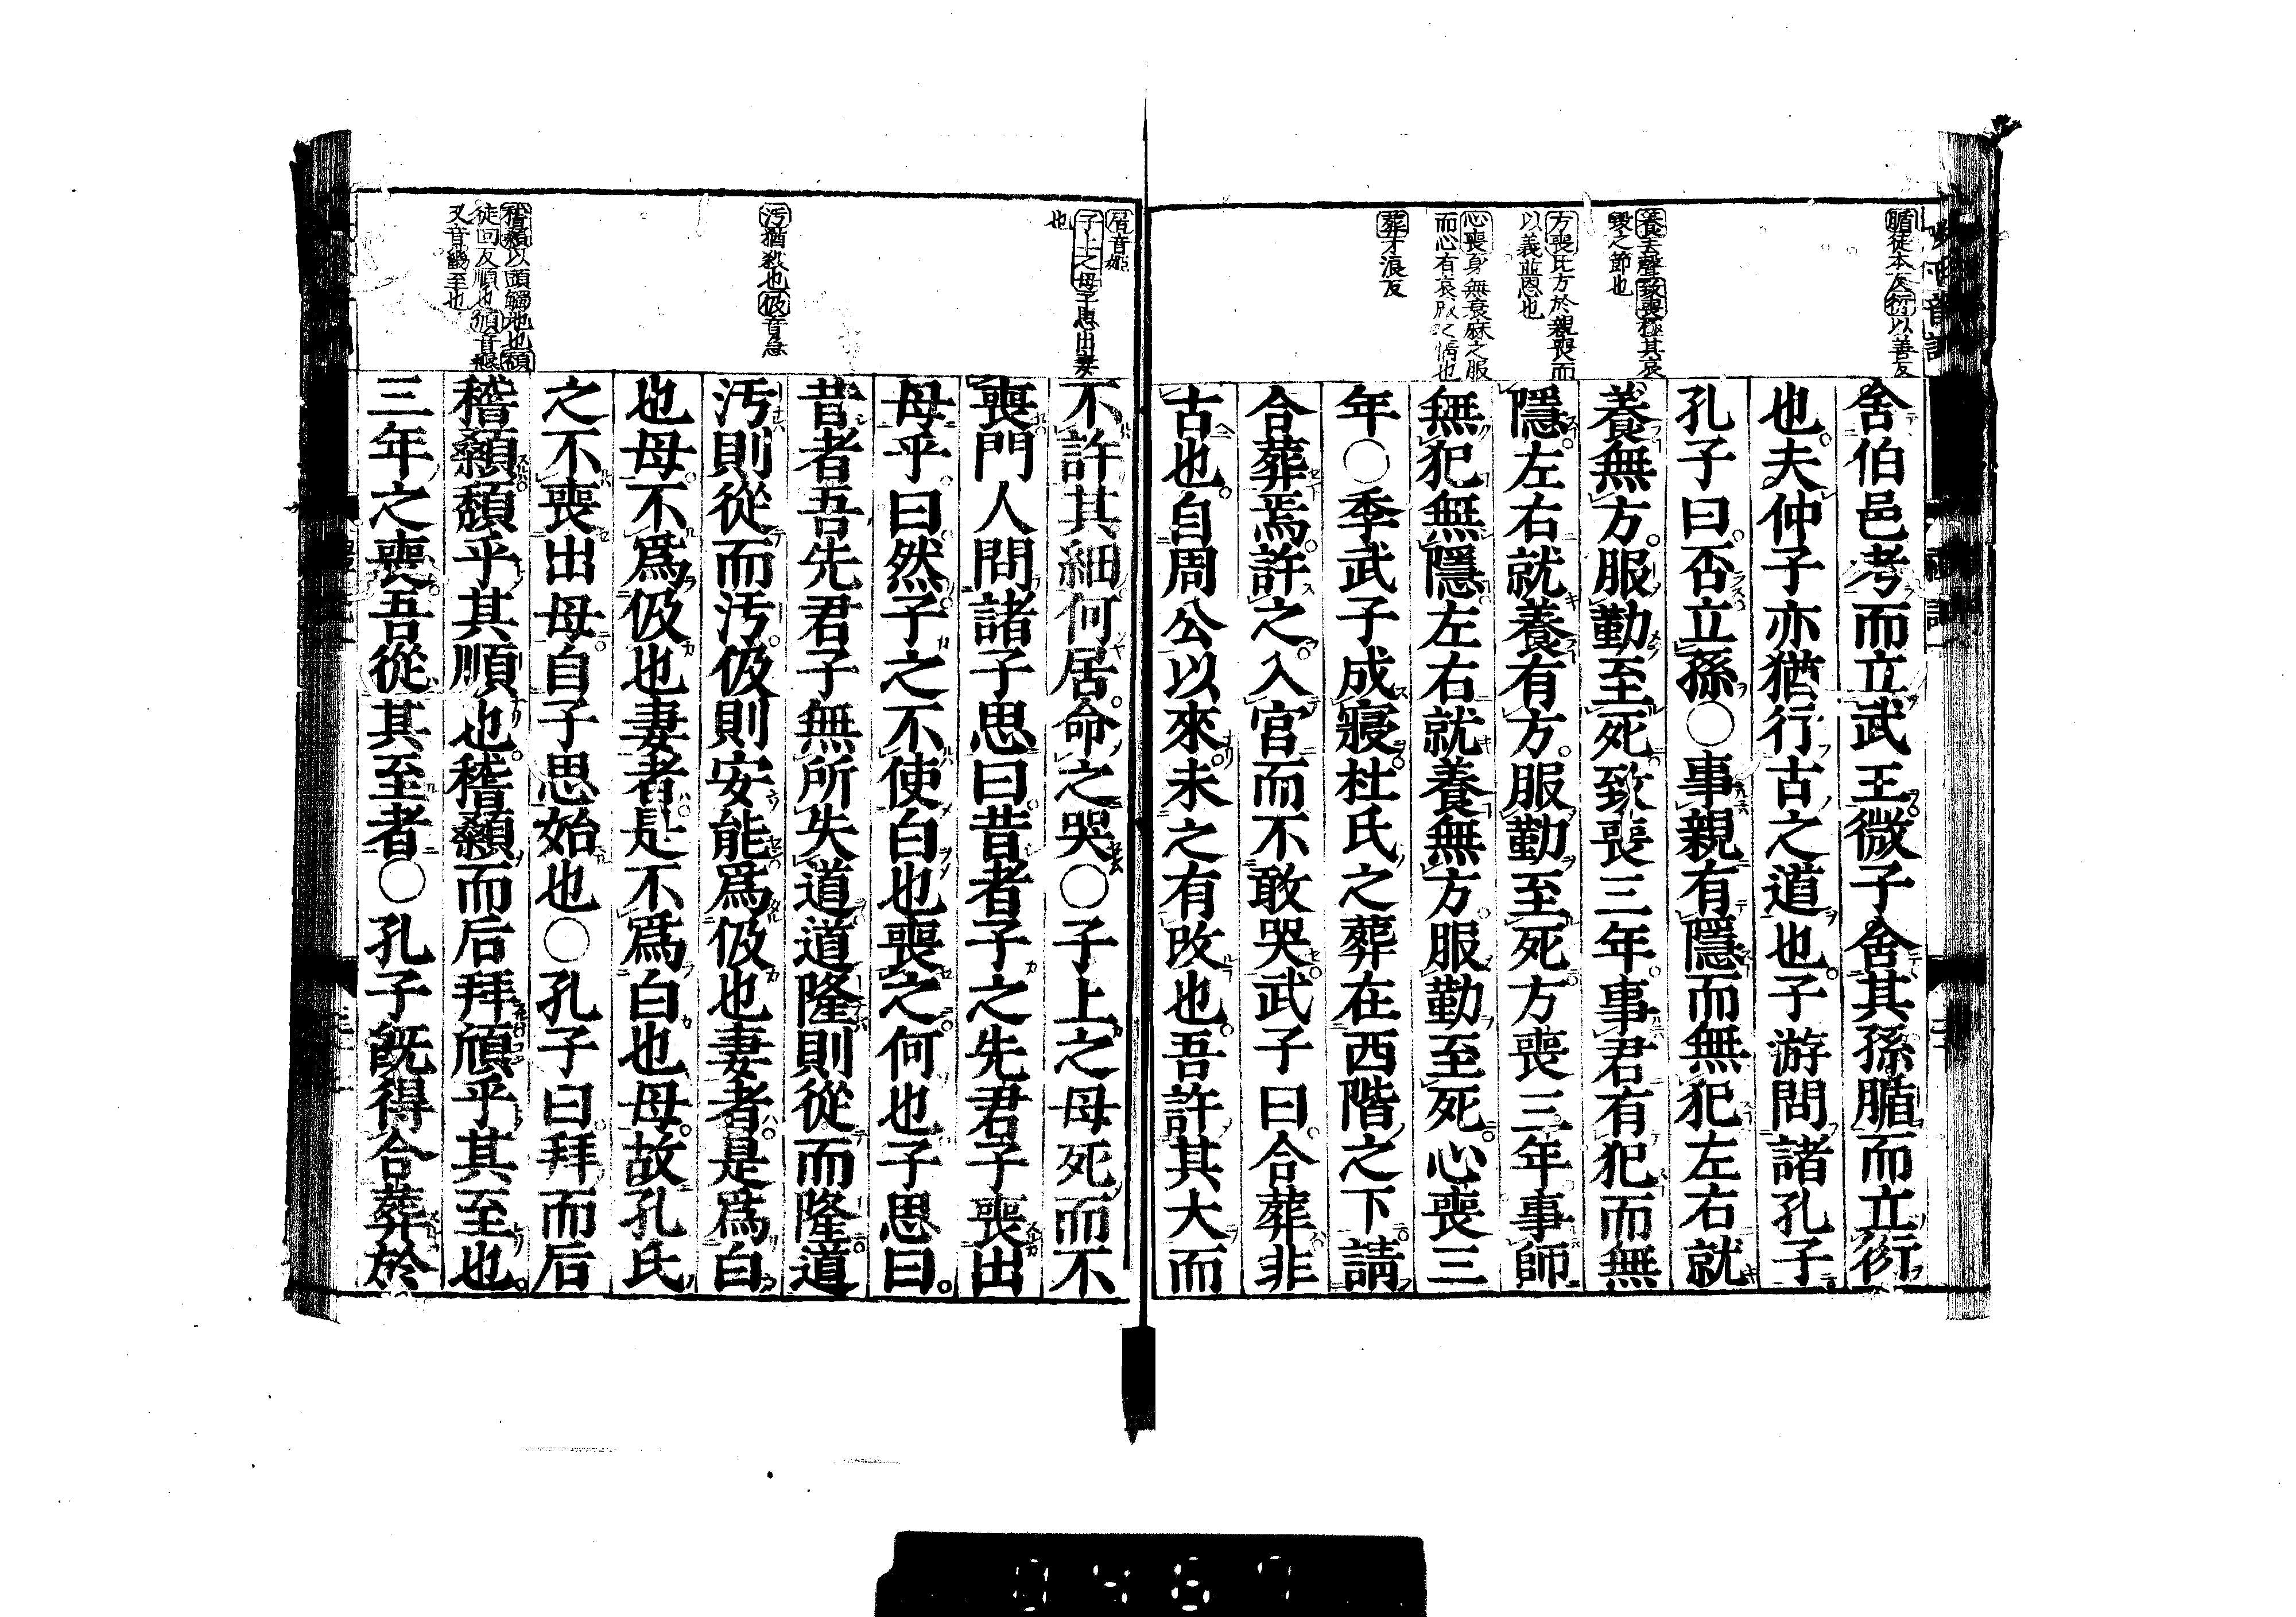 腯徒本反衍以善反
養去聲致喪極其哀
毀之節也
方喪比方於親喪而
以義並恩也
心喪身無衰麻之服
而心有哀戚之情也
葬才浪反
舍伯邑考而立武王微子舍其孫腯而立衍
也夫仲子亦猶行古之道也子游問諸孔子
孔子曰否立孫○事親有隱而無犯左右就
養無方服勤至死致喪三年事君有犯而無
隱左右就養有方服勤至死方喪三年事師
無犯無隱左右就養無方服勤至死心喪三
年○季武子成寢杜氏之葬在西階之下請
合葬焉許之入官而不敢哭武子曰合葬非
古也自周公以來未之有改也吾許其大而
居音姬
子上之母子思出妻
也
汚猶殺也伋音急
稽顙以頭觸地也頽
徒回反順也頎音懇
又音畿至也
不許其細何居命之哭○子上之母死而不
喪門人問諸子思曰昔者子之先君子喪出
母乎曰然子之不使白也喪之何也子思曰
昔者吾先君子無所失道道隆則從而隆道
汚則從而汚伋則安能爲伋也妻者是爲白
也母不爲伋也妻者是不爲白也母故孔氏
之不喪出母自子思始也○孔子曰拜而后
稽顙頽乎其順也稽顙而后拜頎乎其至也
三年之喪吾從其至者○孔子旣得合葬於